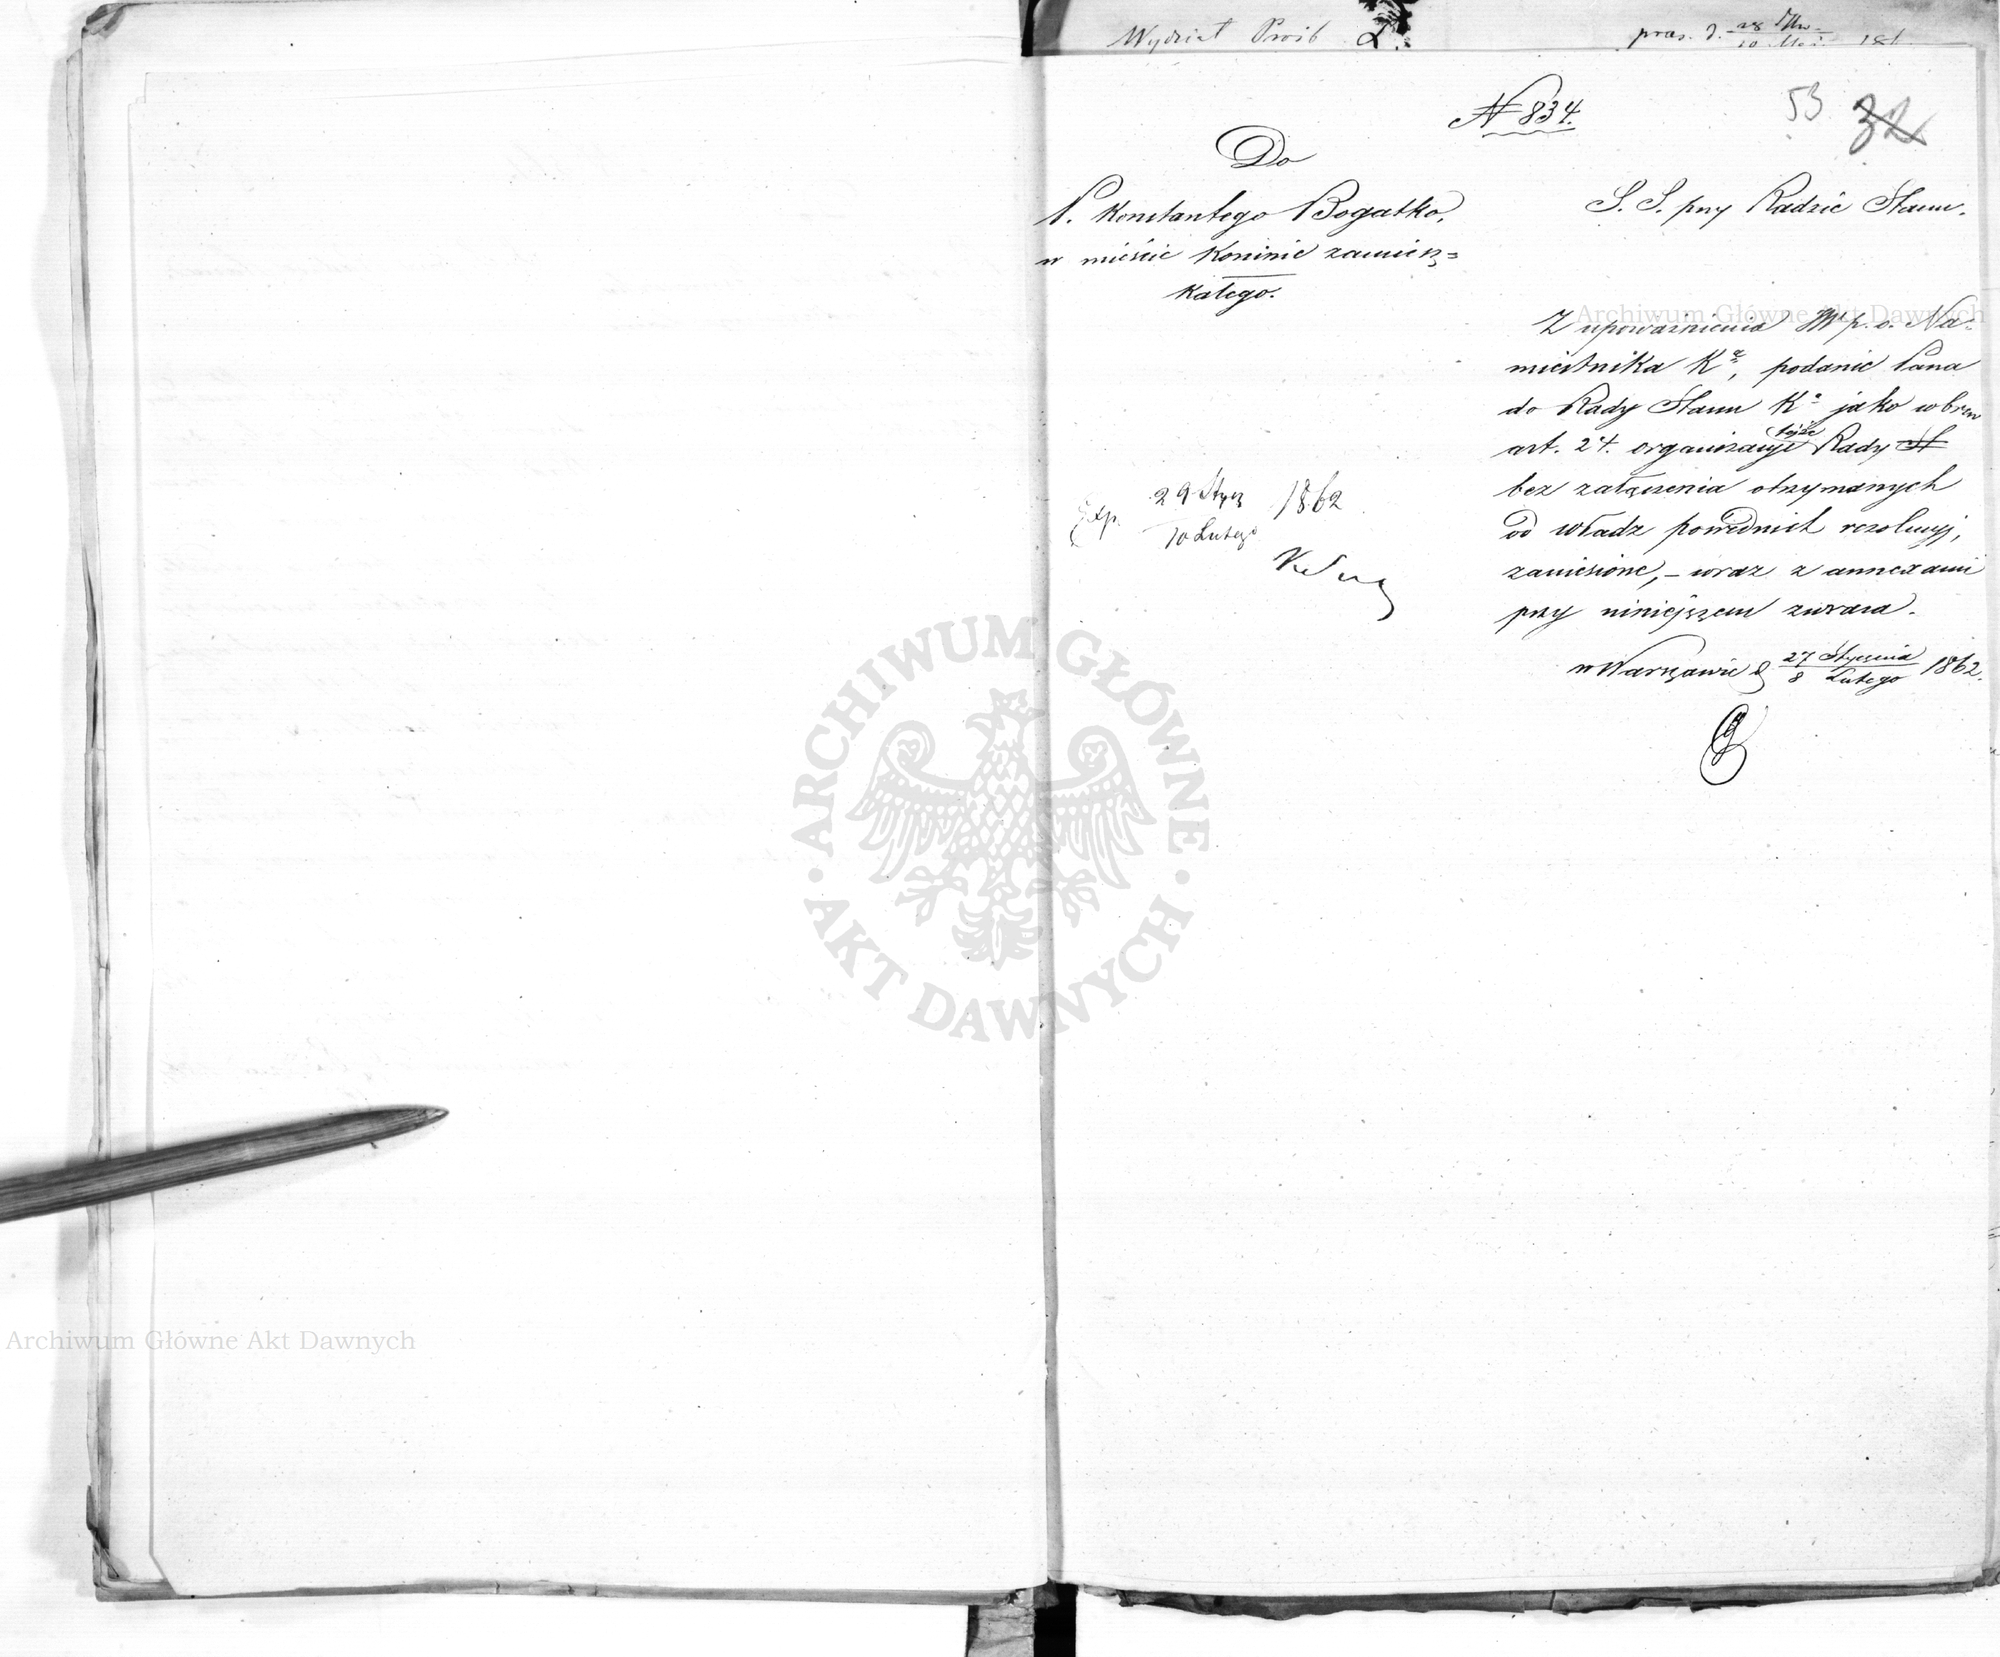 Wydział Próśb
N 834.
53
32
Do
P. Konstantego Bogatko,
w mieście Koninie zamiesz=
kałego.
S. S. przy Radzie Stanu.
Z upoważnienia JW p. o. Na=
miestnika Kª, podanie Pana
do Rady Stanu Kª jako wbrew
art. 24. organizacyi tejże Rady St
bez załączenia otrzymanych
od władz pośrednich rezolucyj,
zaniesione, – wraz z annexami
przy niniejszem zwraca.
w Warszawie d 27 Stycznia / 8 Lutego 1862.
Exp. 29 Stycz / 10 Lutego 1862
Archiwum Główne Akt Dawnych
ARCHIWUM GŁÓWNE AKT DAWNYCH
Archiwum Główne Akt Dawnych